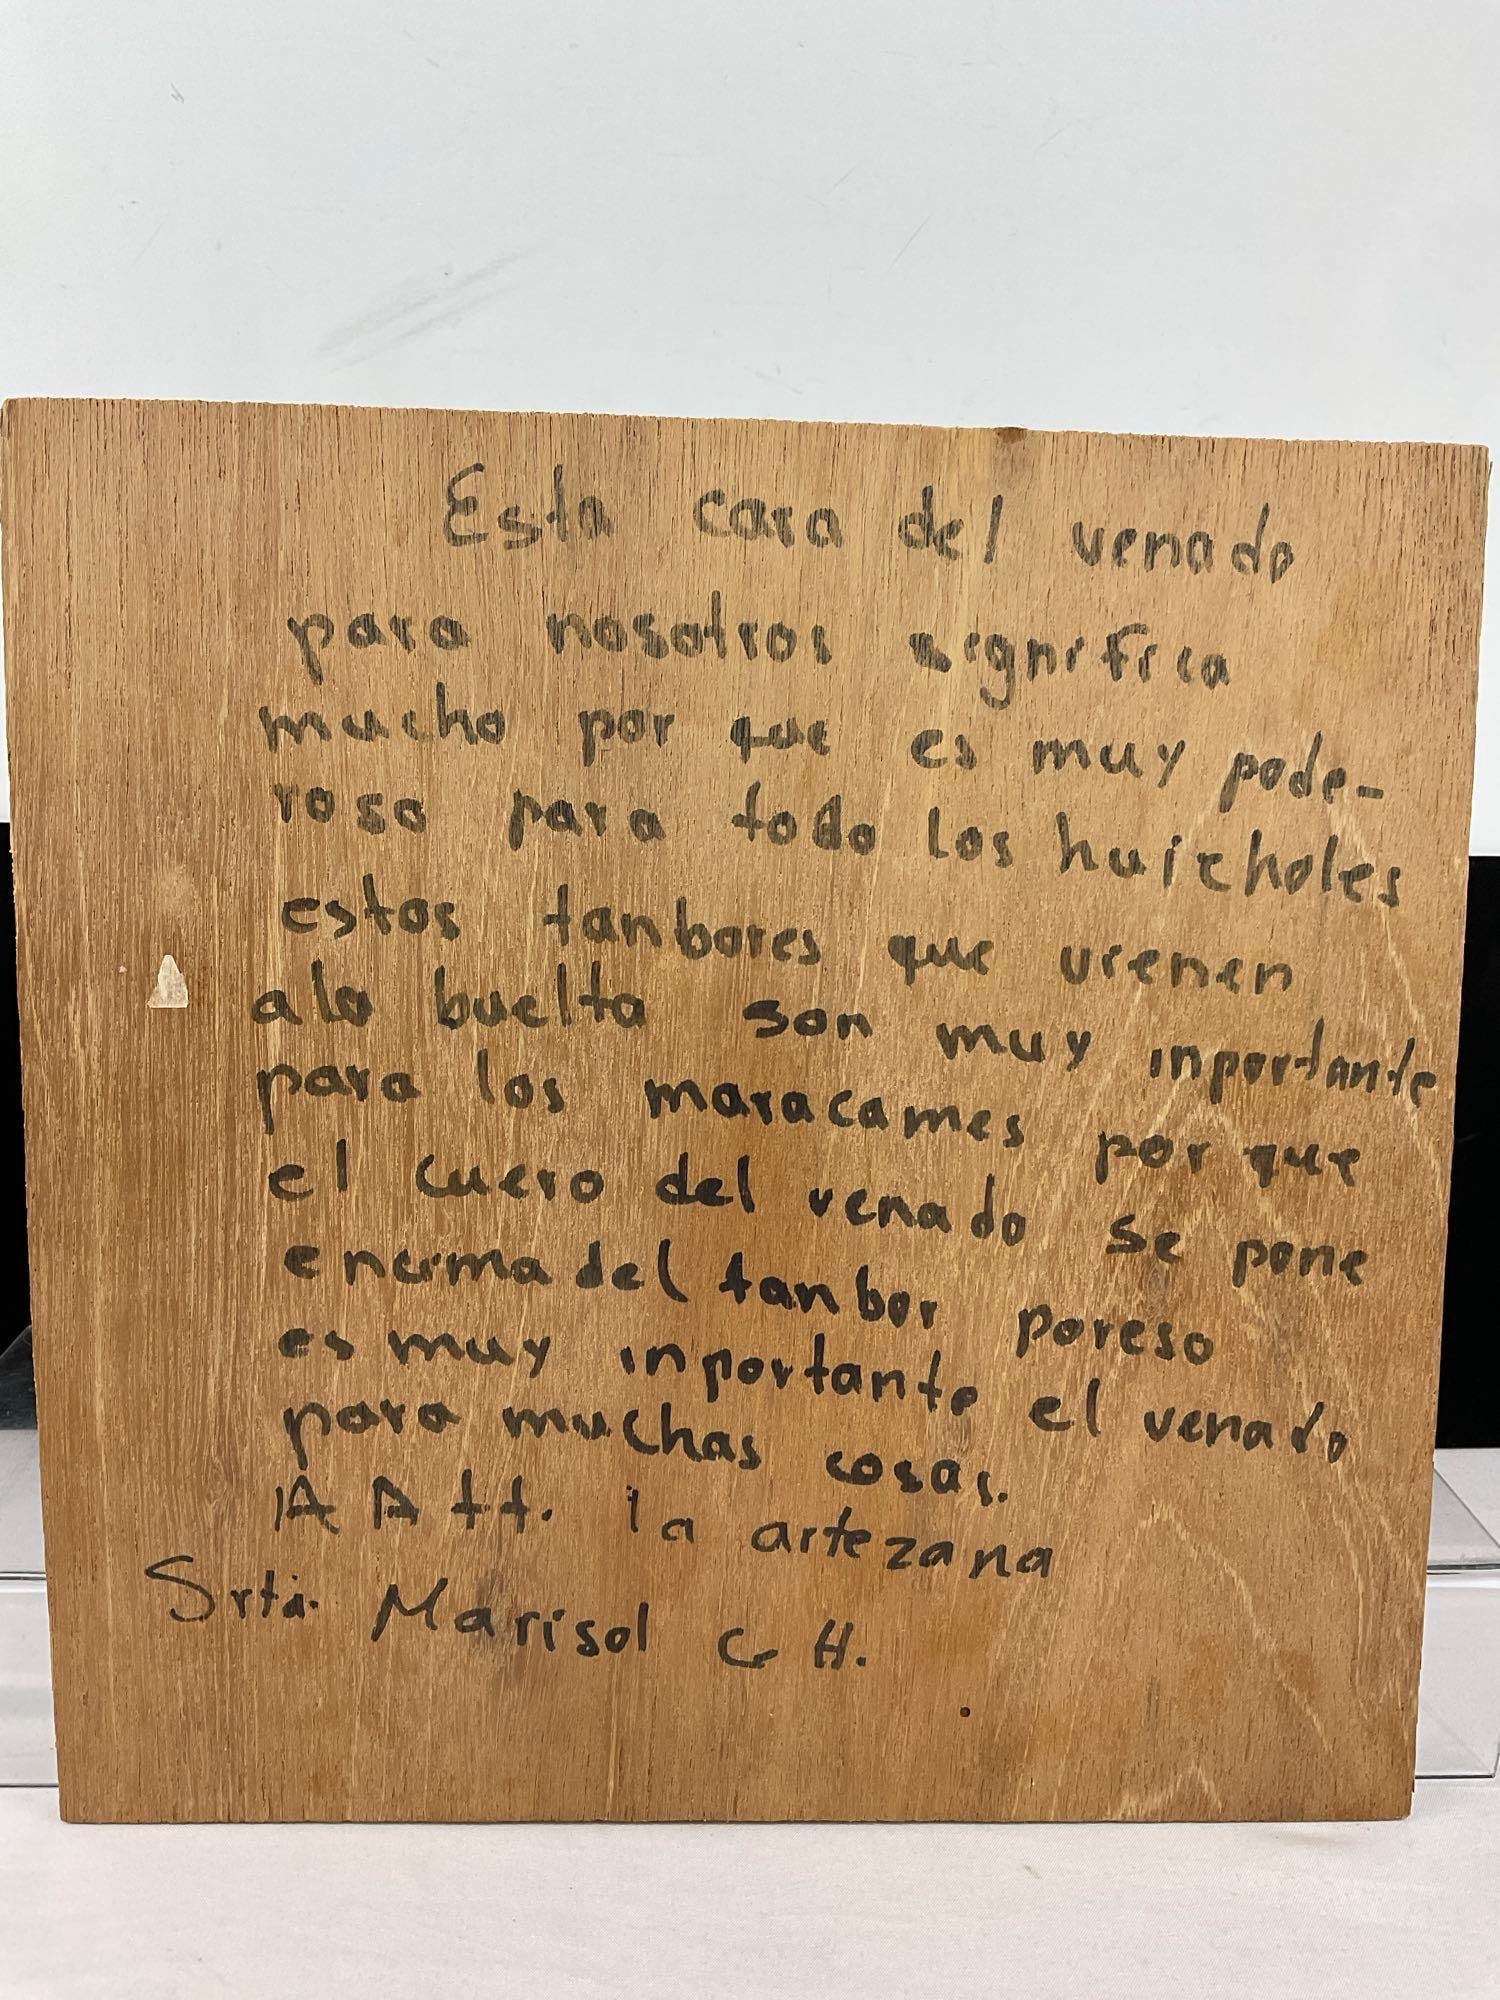 Esta cara del venado
para nosotros significa
mucho por que es muy pode-
roso para todo los huicholes
estos tanbores que vienen
ala buelta son muy inportante
para los maracames por que
el cuero del venado se pone
encima del tanbor poreso
es muy inportante el venado
para muchas cosas.
A Att. la artezana
Srta. Marisol G H.